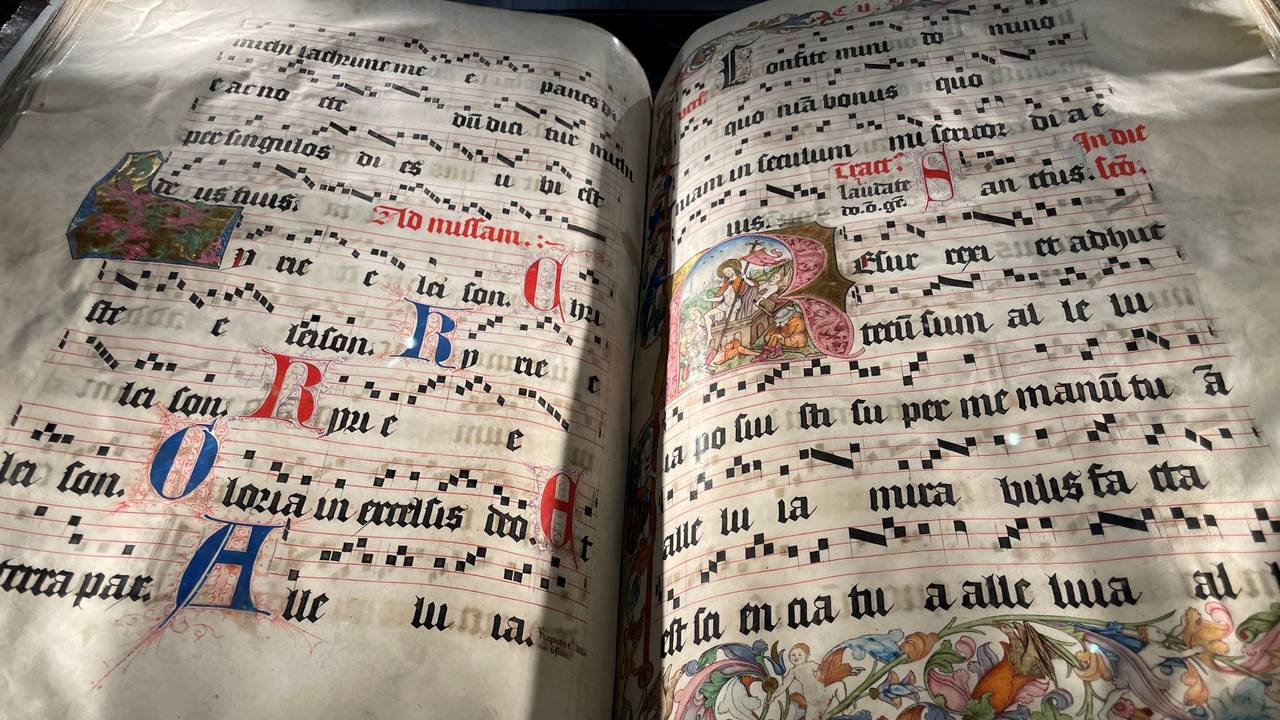 michi lachrime me e panes di
e ac no cte dū dici tur michi
per singulos di es u bi est
de us tuus. Ad missam.
p rie e lei son. C hri
ste e leison. K p rie e
lei son. K pri e e
lei son. G loria in excelsis deo. E t
terra pax. A lle lu ia.
C onfite mini do mino
quo niā bonus quo
niam in seculum mi sericor di a e
ius. Tract⁹ laudate do. o. gē. S an ctus. In die scō.
R Esur rexi et adhuc
tecū sum al le lu
ia po sui sti su per me manū tu ā
alle lu ia mira bilis fa cta
est sci en cia tu a alle luia al